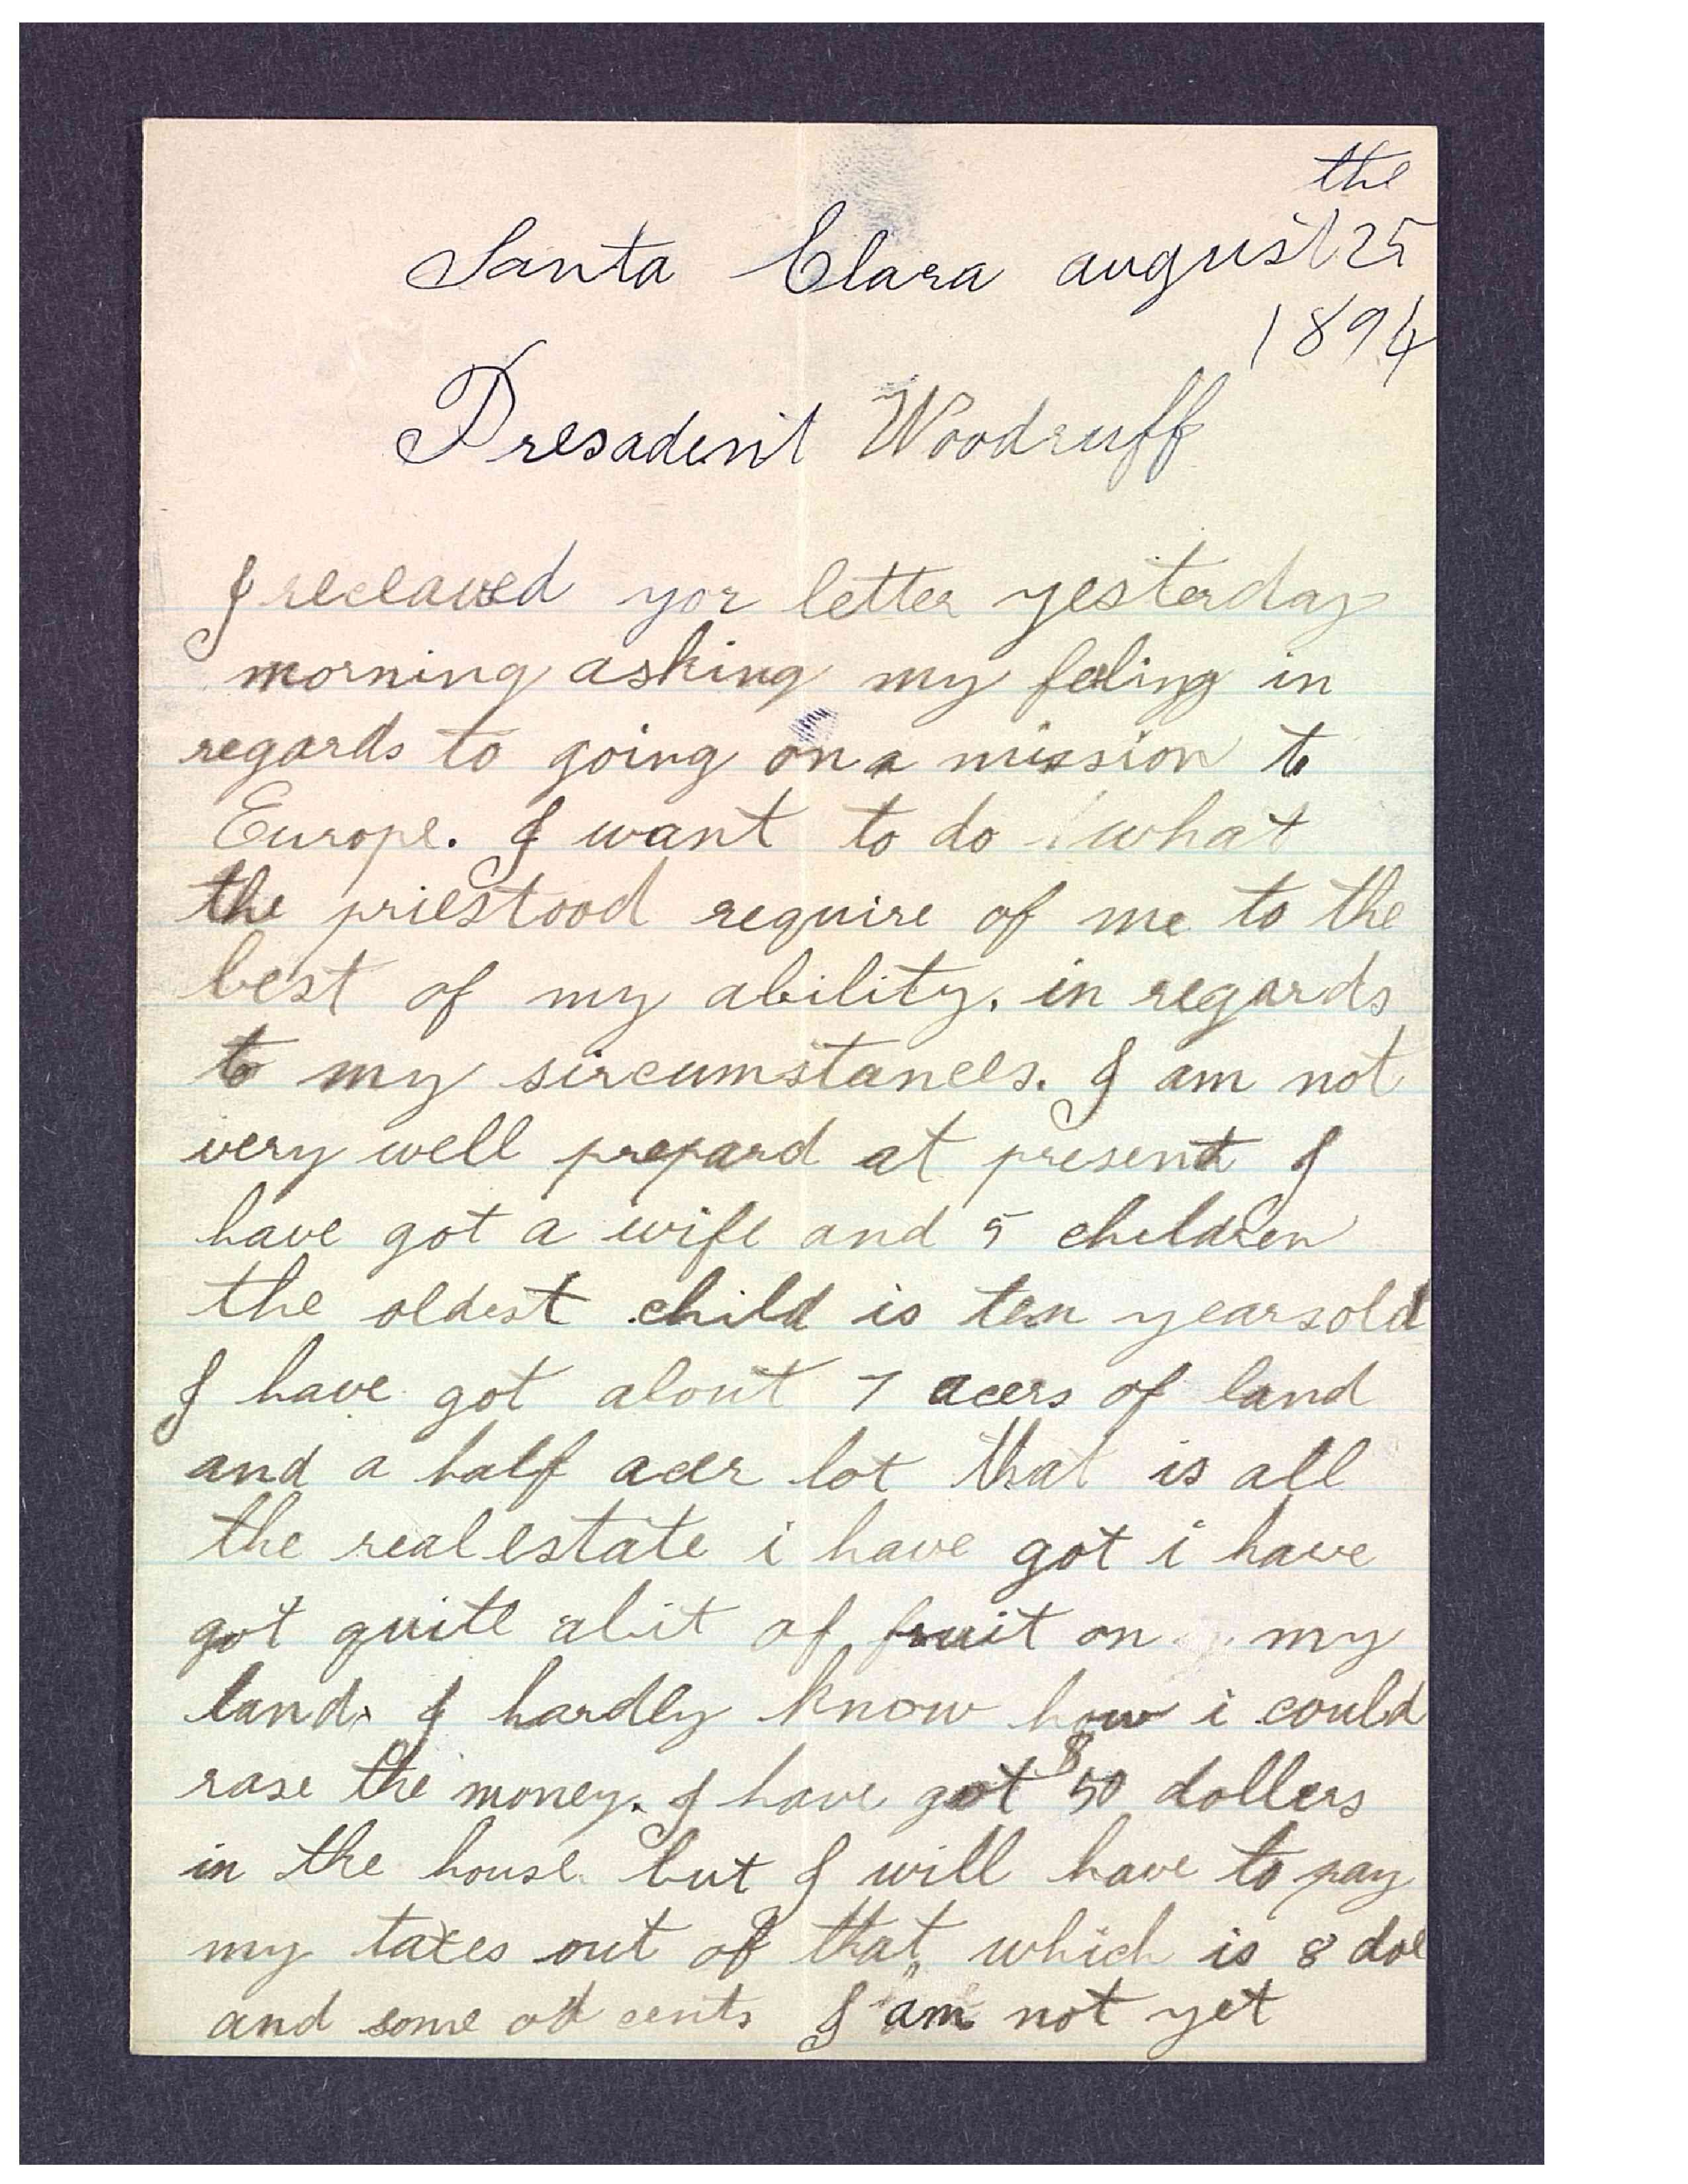 the
Santa Clara august 25
1894
Presadent Woodruff
I recieaved yor letter yesterday
morning asking my feling in
regards to going on a mission to
Europe. I want to do what
the priestood require of me to the
best of my ability. in regards
to my sircumstances. I am not
very well prepard at present I
have got a wife and 5 children
the oldest child is ten years old
I have got about 7 acers of land
and a half acer lot that is all
the real estate i have got i have
got quite abit of fruit on my
land. I hardly know how i could
rase the money. I have got $50 dollers
in the house but I will have to pay
my taxes out of that, which is 8 dol
and some od cents I am not yet